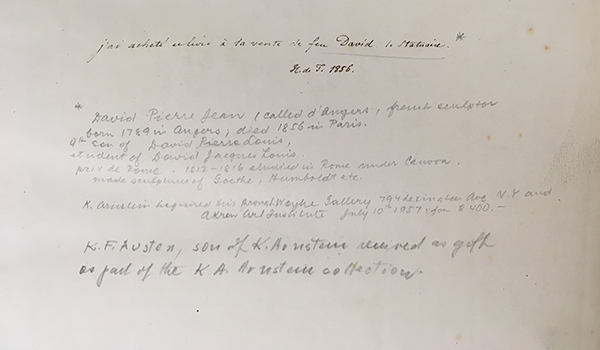 j'ai acheté ce livre à la vente de feu David le statuaire.*
H. de T. 1856.
* David Pierre Jean, (called d'Angers, french sculptor
born 1789 in Angers, died 1856 in Paris.
son of David Pierre Louis,
student of David Jacques Louis.
prix de Rome. 1812-1816 studied in Rome under Canova.
made sculpture of Goethe, Humboldt etc.
K. Arnstein acquired this Weyhe Gallery 794 Lexington Ave N.Y and
Akron Art Institute July 10th 1957 for $400.-
K. F. Austen, son of K. Arnstein received as gift
as part of the K A Arnstein collection.